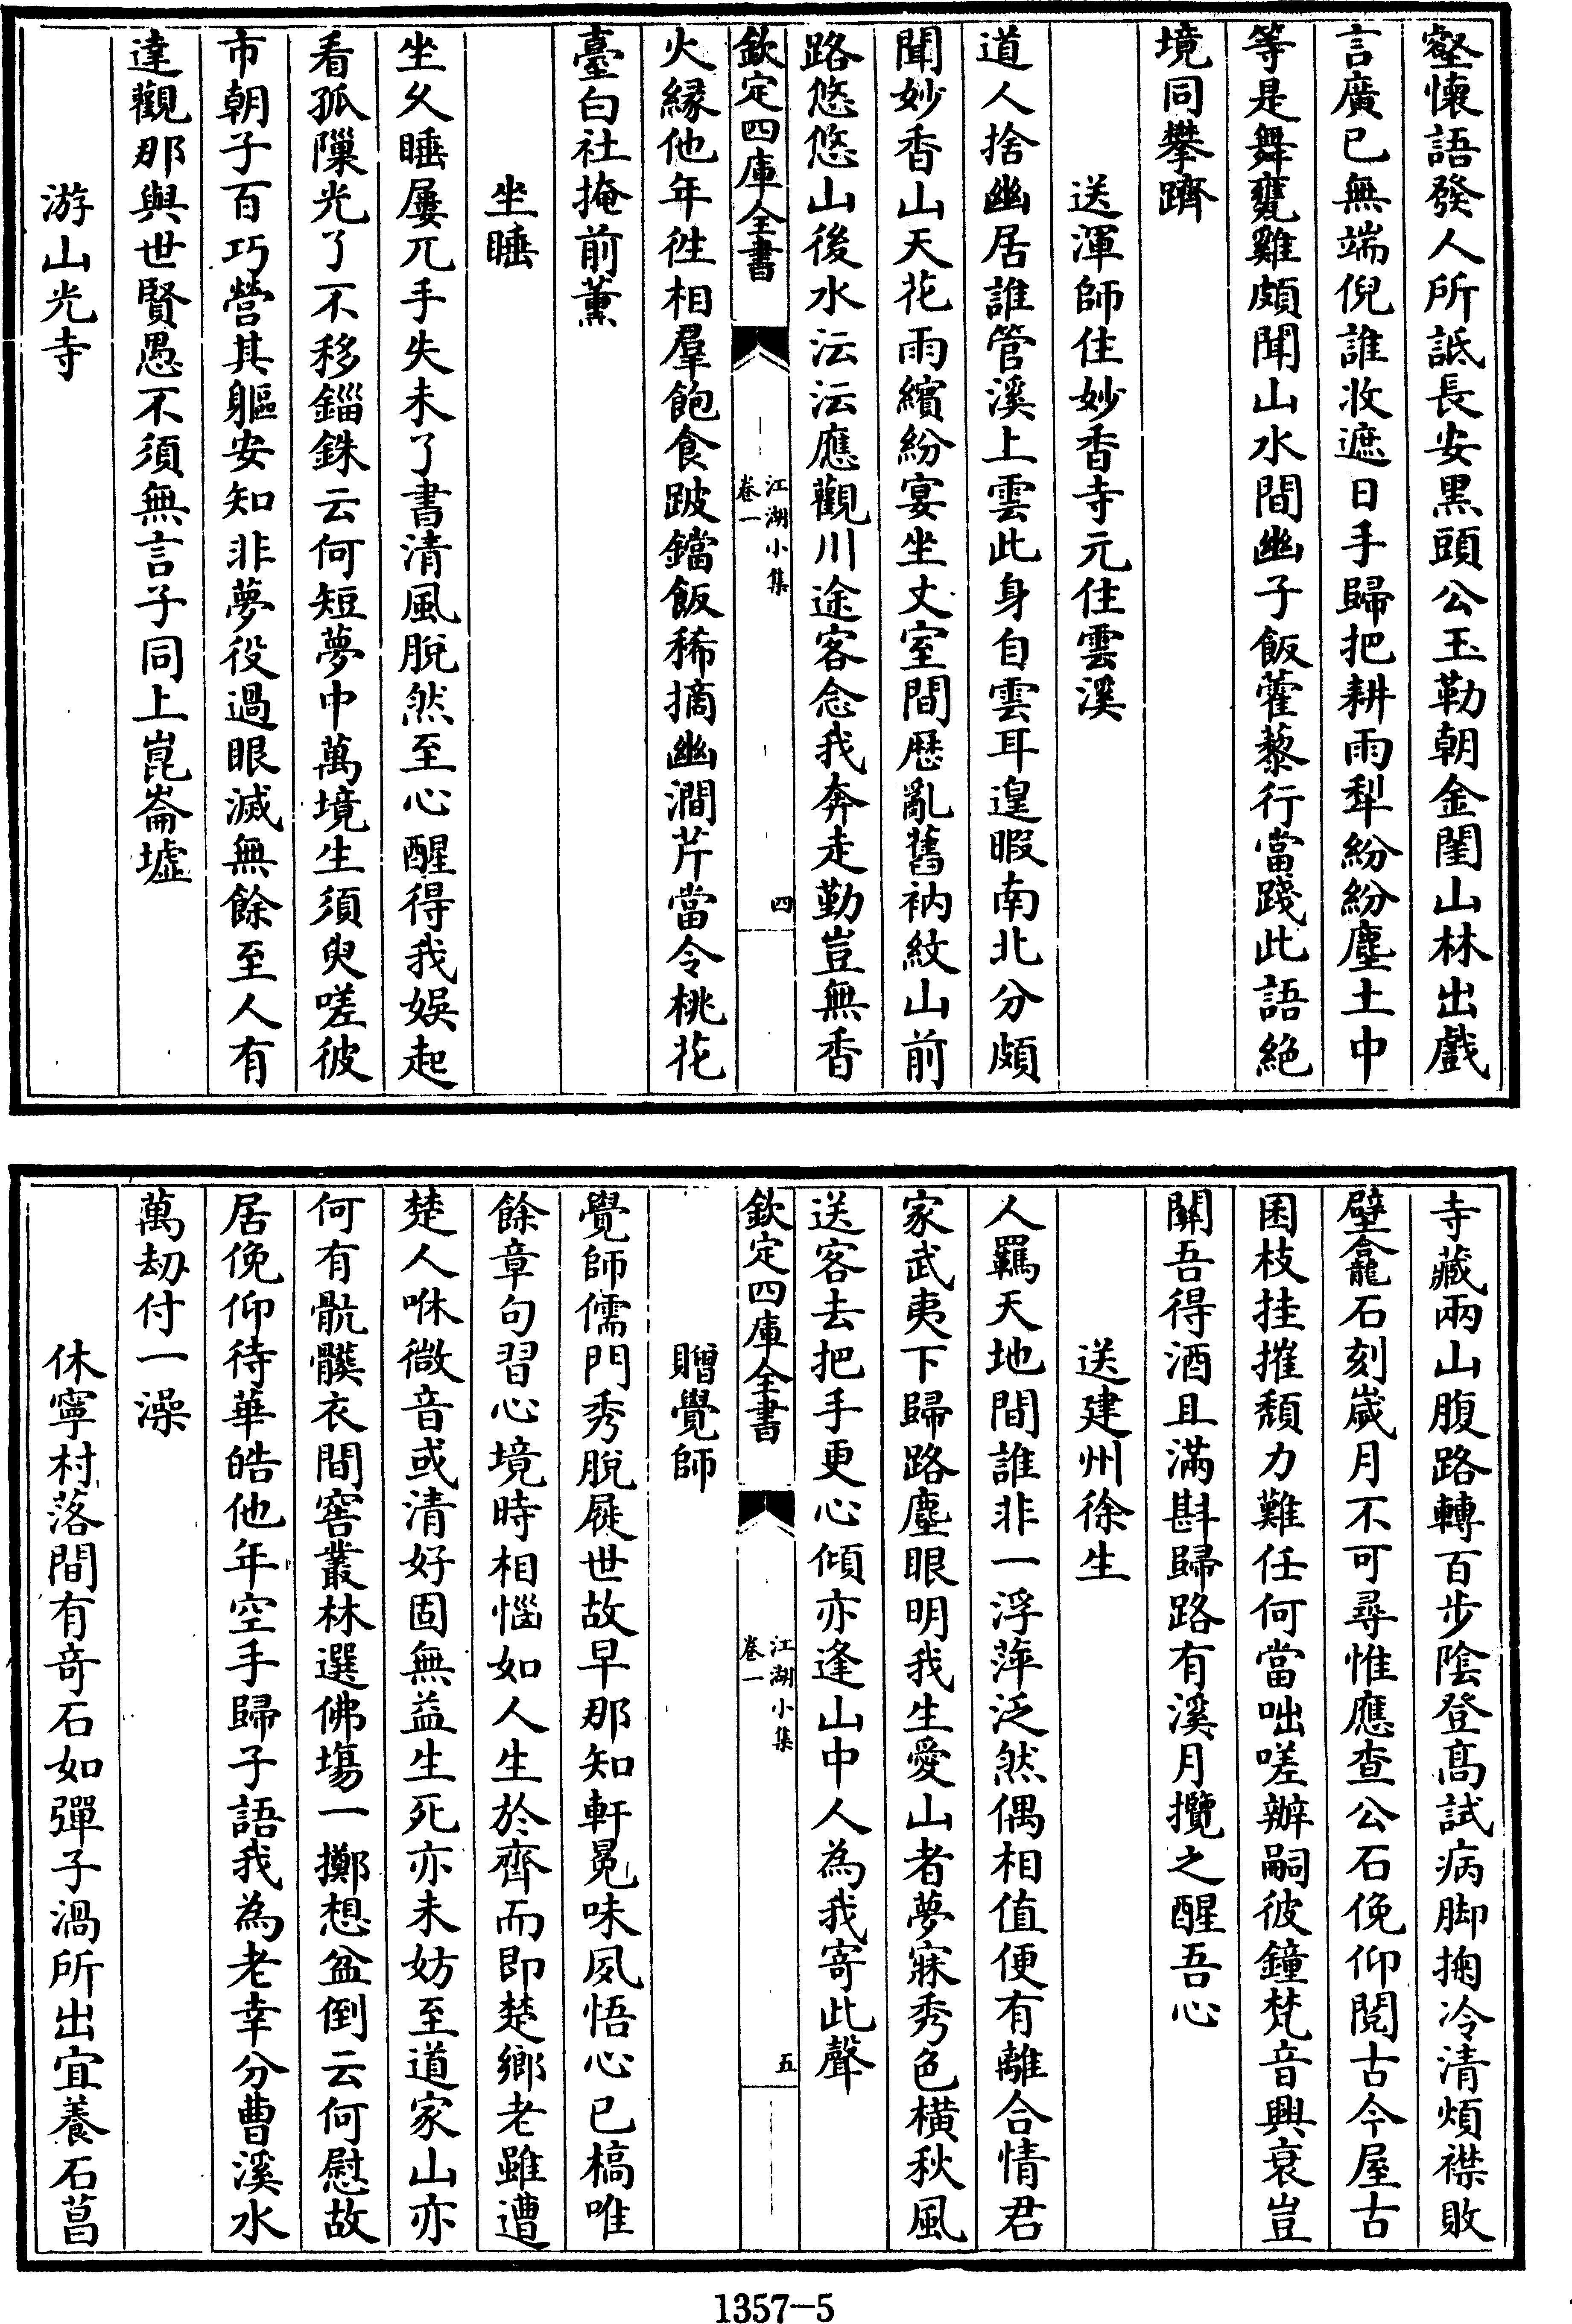 壑懷語發人所詆長安黒頭公玉勒朝金閨山林出戲
言廣已無端倪誰收遮日手歸把耕雨犁紛紛塵土中
等是舞甕雞頗聞山水間幽子飯藿藜行當踐此語絶
境同攀躋
送渾師住妙香寺元住雲溪
道人捨幽居誰管溪上雲此身自雲耳遑暇南北分頗
聞妙香山天花雨繽紛宴坐丈室間厯亂舊衲紋山前
路悠悠山後水沄沄應觀川途客念我奔走勤豈無香
欽定四庫全書
江湖小集
卷一
四
火縁他年徃相羣飽食跛鐺飯稀摘幽澗芹當令桃花
臺白社掩前薰
坐睡
坐乆睡屢兀手失未了書清風脫然至心醒得我娛起
看孤隙光了不移錙銖云何短夢中萬境生須臾嗟彼
市朝子百巧營其軀安知非夢役過眼滅無餘至人有
達觀那與世賢愚不須無言子同上崑崙墟
游山光寺
寺藏兩山腹路轉百步隂登髙試病脚掬冷清煩襟敗
壁龕石刻嵗月不可尋惟應查公石俛仰閱古今屋古
困枝拄摧頽力難任何當咄嗟辦嗣彼鐘梵音興衰豈
關吾得酒且滿斟歸路有溪月攬之醒吾心
送建州徐生
人羈天地間誰非一浮萍泛然偶相值便有離合情君
家武夷下歸路塵眼明我生愛山者夢寐秀色横秋風
送客去把手更心傾亦逢山中人為我寄此聲
欽定四庫全書
江湖小集
卷一
五
贈覺師
覺師儒門秀脫屣世故早那知軒冕味夙悟心已槁唯
餘章句習心境時相惱如人生於齊而即楚鄉老雖遭
楚人咻微音或清好固無益生死亦未妨至道家山亦
何有骯髒衣間窖叢林選佛塲一擲想盆倒云何慰故
居俛仰待華皓他年空手歸子語我為老幸分曹溪水
萬劫付一澡
休寧村落間有竒石如彈子渦所出宜養石菖
1357-5